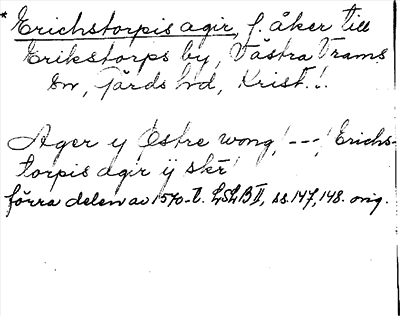 * Erichstorpis agir, f. åker till
Erikstorps by, Västra Vrams
sn, Gärds hd, Krist. l.
Ager y Östre wong! --- ! Erichs-
torpis agir ÿ skr!
förra delen av 1570-t. LSLB II, ss. 147, 148. orig.